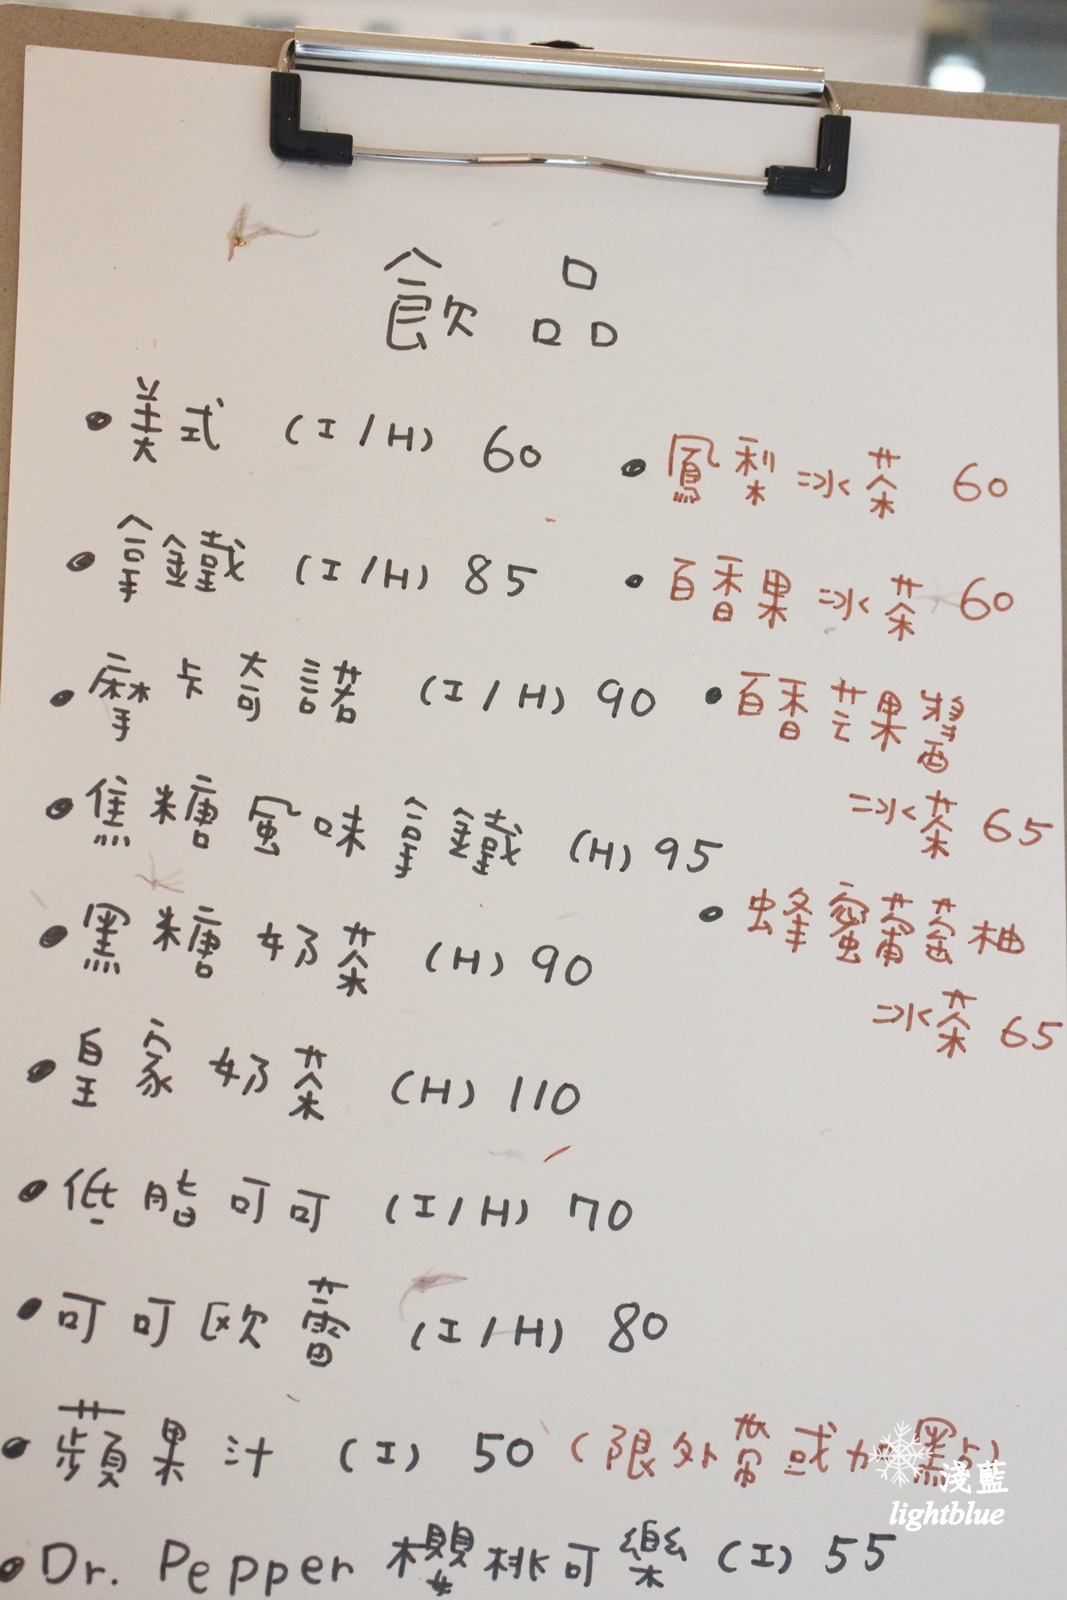 飲品
美式 (I/H) 60
拿鐵 (I/H) 85
摩卡奇諾 (I/H) 90
焦糖風味拿鐵 (H) 95
黑糖奶茶 (H) 90
皇家奶茶 (H) 110
低脂可可 (I/H) 70
可可歐蕾 (I/H) 80
蘋果汁 (I) 50 (限外帶或加點)
Dr. Pepper 櫻桃可樂 (I) 55
鳳梨冰茶 60
百香果冰茶 60
百香芒果醬
冰茶 65
蜂蜜葡萄柚
冰茶 65
淺藍
lightblue